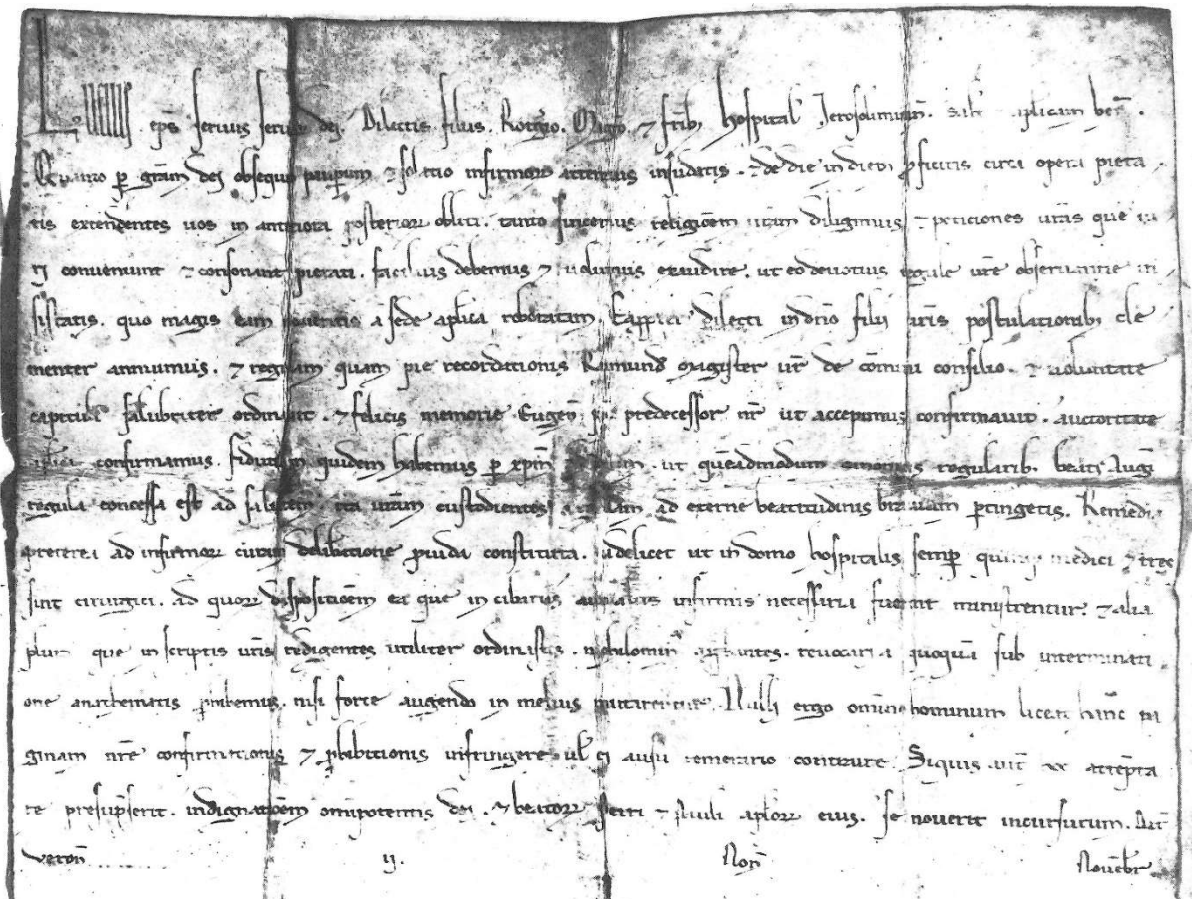 Lucius eps servus servor dei. Dilectis filiis. Rogerio. Magro. ⁊ frib; hospital Jerosolimitan. salt ⁊ aplicam ben.
Quanto p gram dei obsequiis paupum ⁊ solatio infirmor attentius insudatis. ⁊ de die in diem pficitis circa opera pieta
tis extendentes vos in anteriora posterior obliti. tanto sincerius religioem vram diligimus ⁊ peticiones vras que iu
ri conveniunt ⁊ consonant pietati. facilius debemus ⁊ volumus exaudire. ut eo devotius regule vre observantie in
sistatis. quo magis eam noveritis a sede aplica roboratam. Eapropter dilecti in dno filii vris postulationib; cle
menter annuimus. ⁊ regulam quam pie recordationis Raimund magister vr de comuni consilio. ⁊ voluntate
capituli salubriter ordinavit. ⁊ felicis memorie Eugen pp predecessor nr ut accepimus confirmavit. auctoritate
aplica confirmamus. fiduciam quidem habemus p xpm ut queadmodum omnibus regularib; beati Augi
regula concessa est ad salutem ita vram custodientes ad eterne beatitudinis braviam ptingetis. Remedia
preterea ad infirmor curam deliberatione pvida constituta. videlicet ut in domo hospitalis semp quinq medici ⁊ tres
sint cirurgici. ad quor dispositioem ea que in cibariis infirmis necessaria fuerint ministrentur. ⁊ alia
plura que in scriptis vris redigentes utiliter ordinastis. nichilomin revocari a quoqua sub interminati
one anathematis phibemus. nisi forte augendo in melius mutarentur. Nulli ergo omnino hominum liceat hanc pa
ginam nre confirmationis ⁊ phibitionis infringere vl ei ausu temerario contraire. Siquis aut hoc attempta
re presupserit. indignatioem omipotentis dei. ⁊ beator Petri ⁊ Pauli aplor eius. se noverit incursurum. Dat
veron ij. Non Novebr